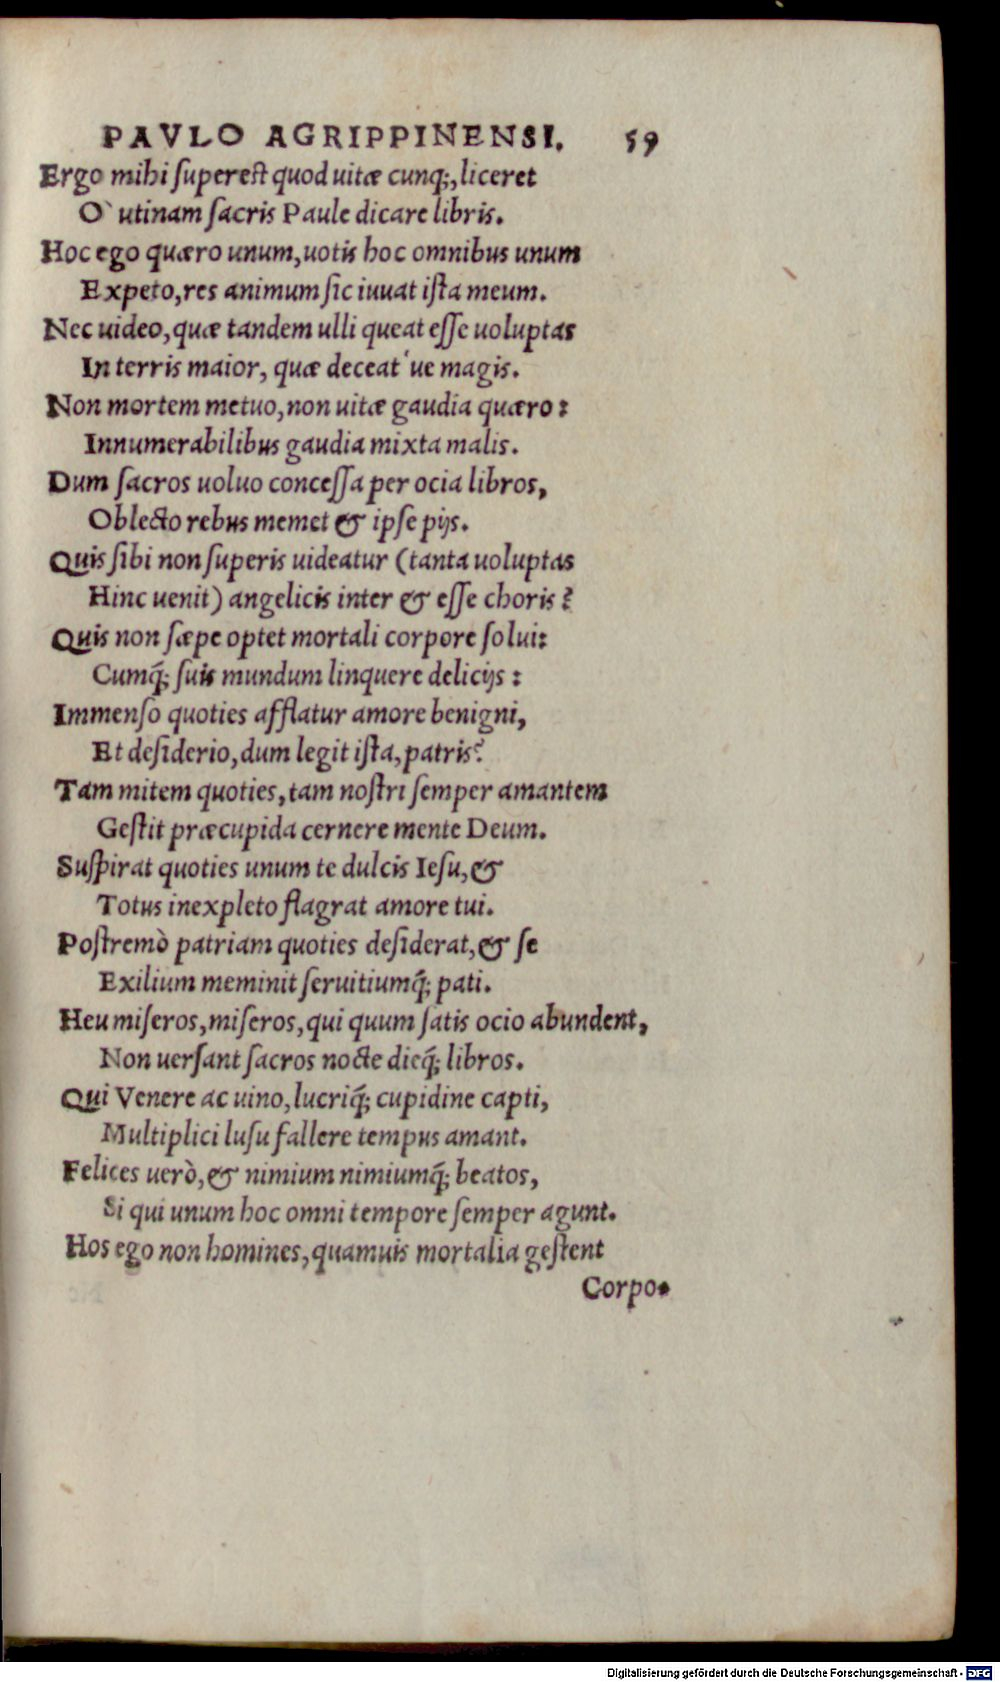 PAVLO AGRIPPINENSI. 59
Ergo mihi ſupereſt quod uitæ cunq;, liceret
O` utinam ſacris Paule dicare libris.
Hoc ego quæro unum, uotis hoc omnibus unum
Expeto, res animum ſic iuuat iſta meum.
Nec uideo, quæ tandem ulli queat eſſe uoluptas
In terris maior, quæ deceat´ue magis.
Non mortem metuo, non uitæ gaudia quæro:
Innumerabilibus gaudia mixta malis.
Dum ſacros uoluo conceſſa per ocia libros,
Oblecto rebus memet & ipſe pijs.
Quis ſibi non ſuperis uideatur (tanta uoluptas
Hinc uenit) angelicis inter & eſſe choris?
Quis non ſæpe optet mortali corpore ſolui:
Cumq́; ſuis mundum linquere delicijs:
Immenſo quoties afflatur amore benigni,
Et deſiderio, dum legit iſta, patris?
Tam mitem quoties, tam noſtri ſemper amantem
Geſtit præcupida cernere mente Deum.
Suſpirat quoties unum te dulcis Ieſu, &
Totus inexpleto flagrat amore tui.
Poſtremò patriam quoties deſiderat, & ſe
Exilium meminit ſeruitiumq́; pati.
Heu miſeros, miſeros, qui quum ſatis ocio abundent,
Non uerſant ſacros nocte dieq́; libros.
Qui Venere ac uino, lucriq́; cupidine capti,
Multiplici luſu fallere tempus amant.
Felices uerò, & nimium nimiumq́; beatos,
Si qui unum hoc omni tempore ſemper agunt.
Hos ego non homines, quamuis mortalia geſtent
Corpo-
Digitalisierung gefördert durch die Deutsche Forschungsgemeinschaft - DFG